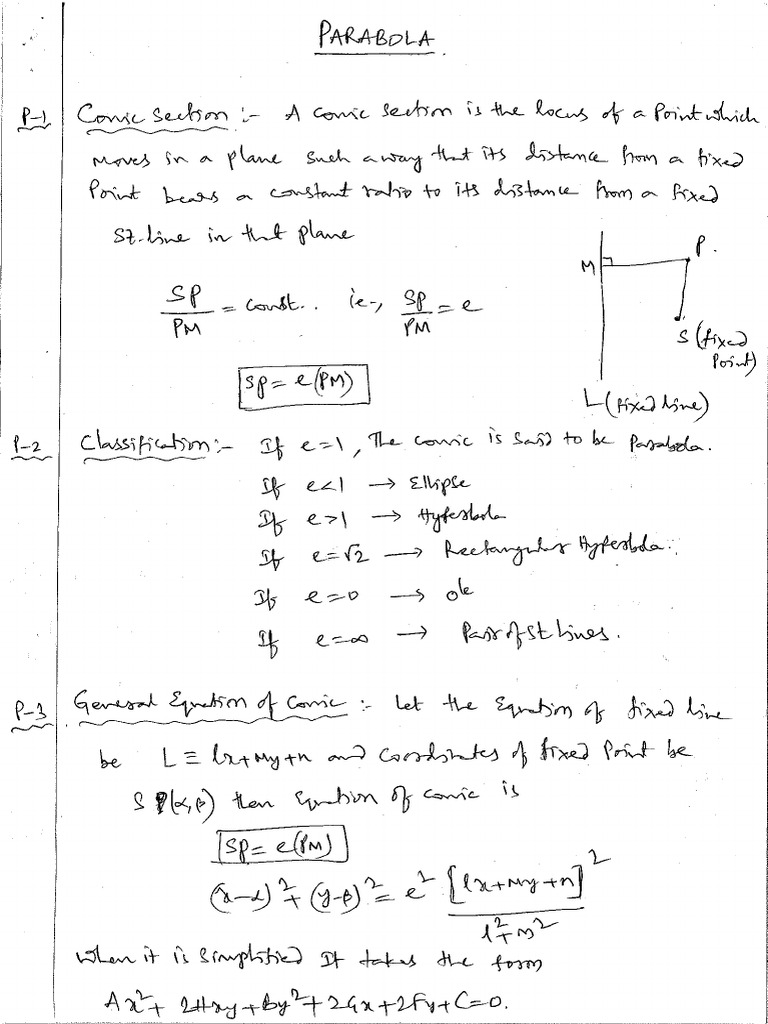 PARABOLA
P-1 Conic Section :- A conic section is the locus of a Point which
moves in a plane such a way that its distance from a fixed
Point bears a constant ratio to its distance from a fixed
St-line in that plane
SP/PM = const.. ie-, SP/PM = e
SP = e(PM)
M
P.
S (fixed
Point)
L (fixed line)
P-2 Classification :- If e=1, The conic is said to be Parabola.
If e<1 → Ellipse
If e>1 → Hyperbola
If e=√2 → Rectangular Hyperbola.
If e=0 → ole
If e=∞ → Pair of St Lines.
P-3 General Equation of Conic :- Let the Equation of fixed line
be L ≡ lx+my+n and coordinates of fixed Point be
S (α,β) then Equation of conic is
SP = e(PM)
(x-α)² + (y-β)² = e² [lx+my+n]² / l²+m²
when it is simplified It takes the form
Ax² + 2Hxy + By² + 2Gx + 2Fy + C = 0.